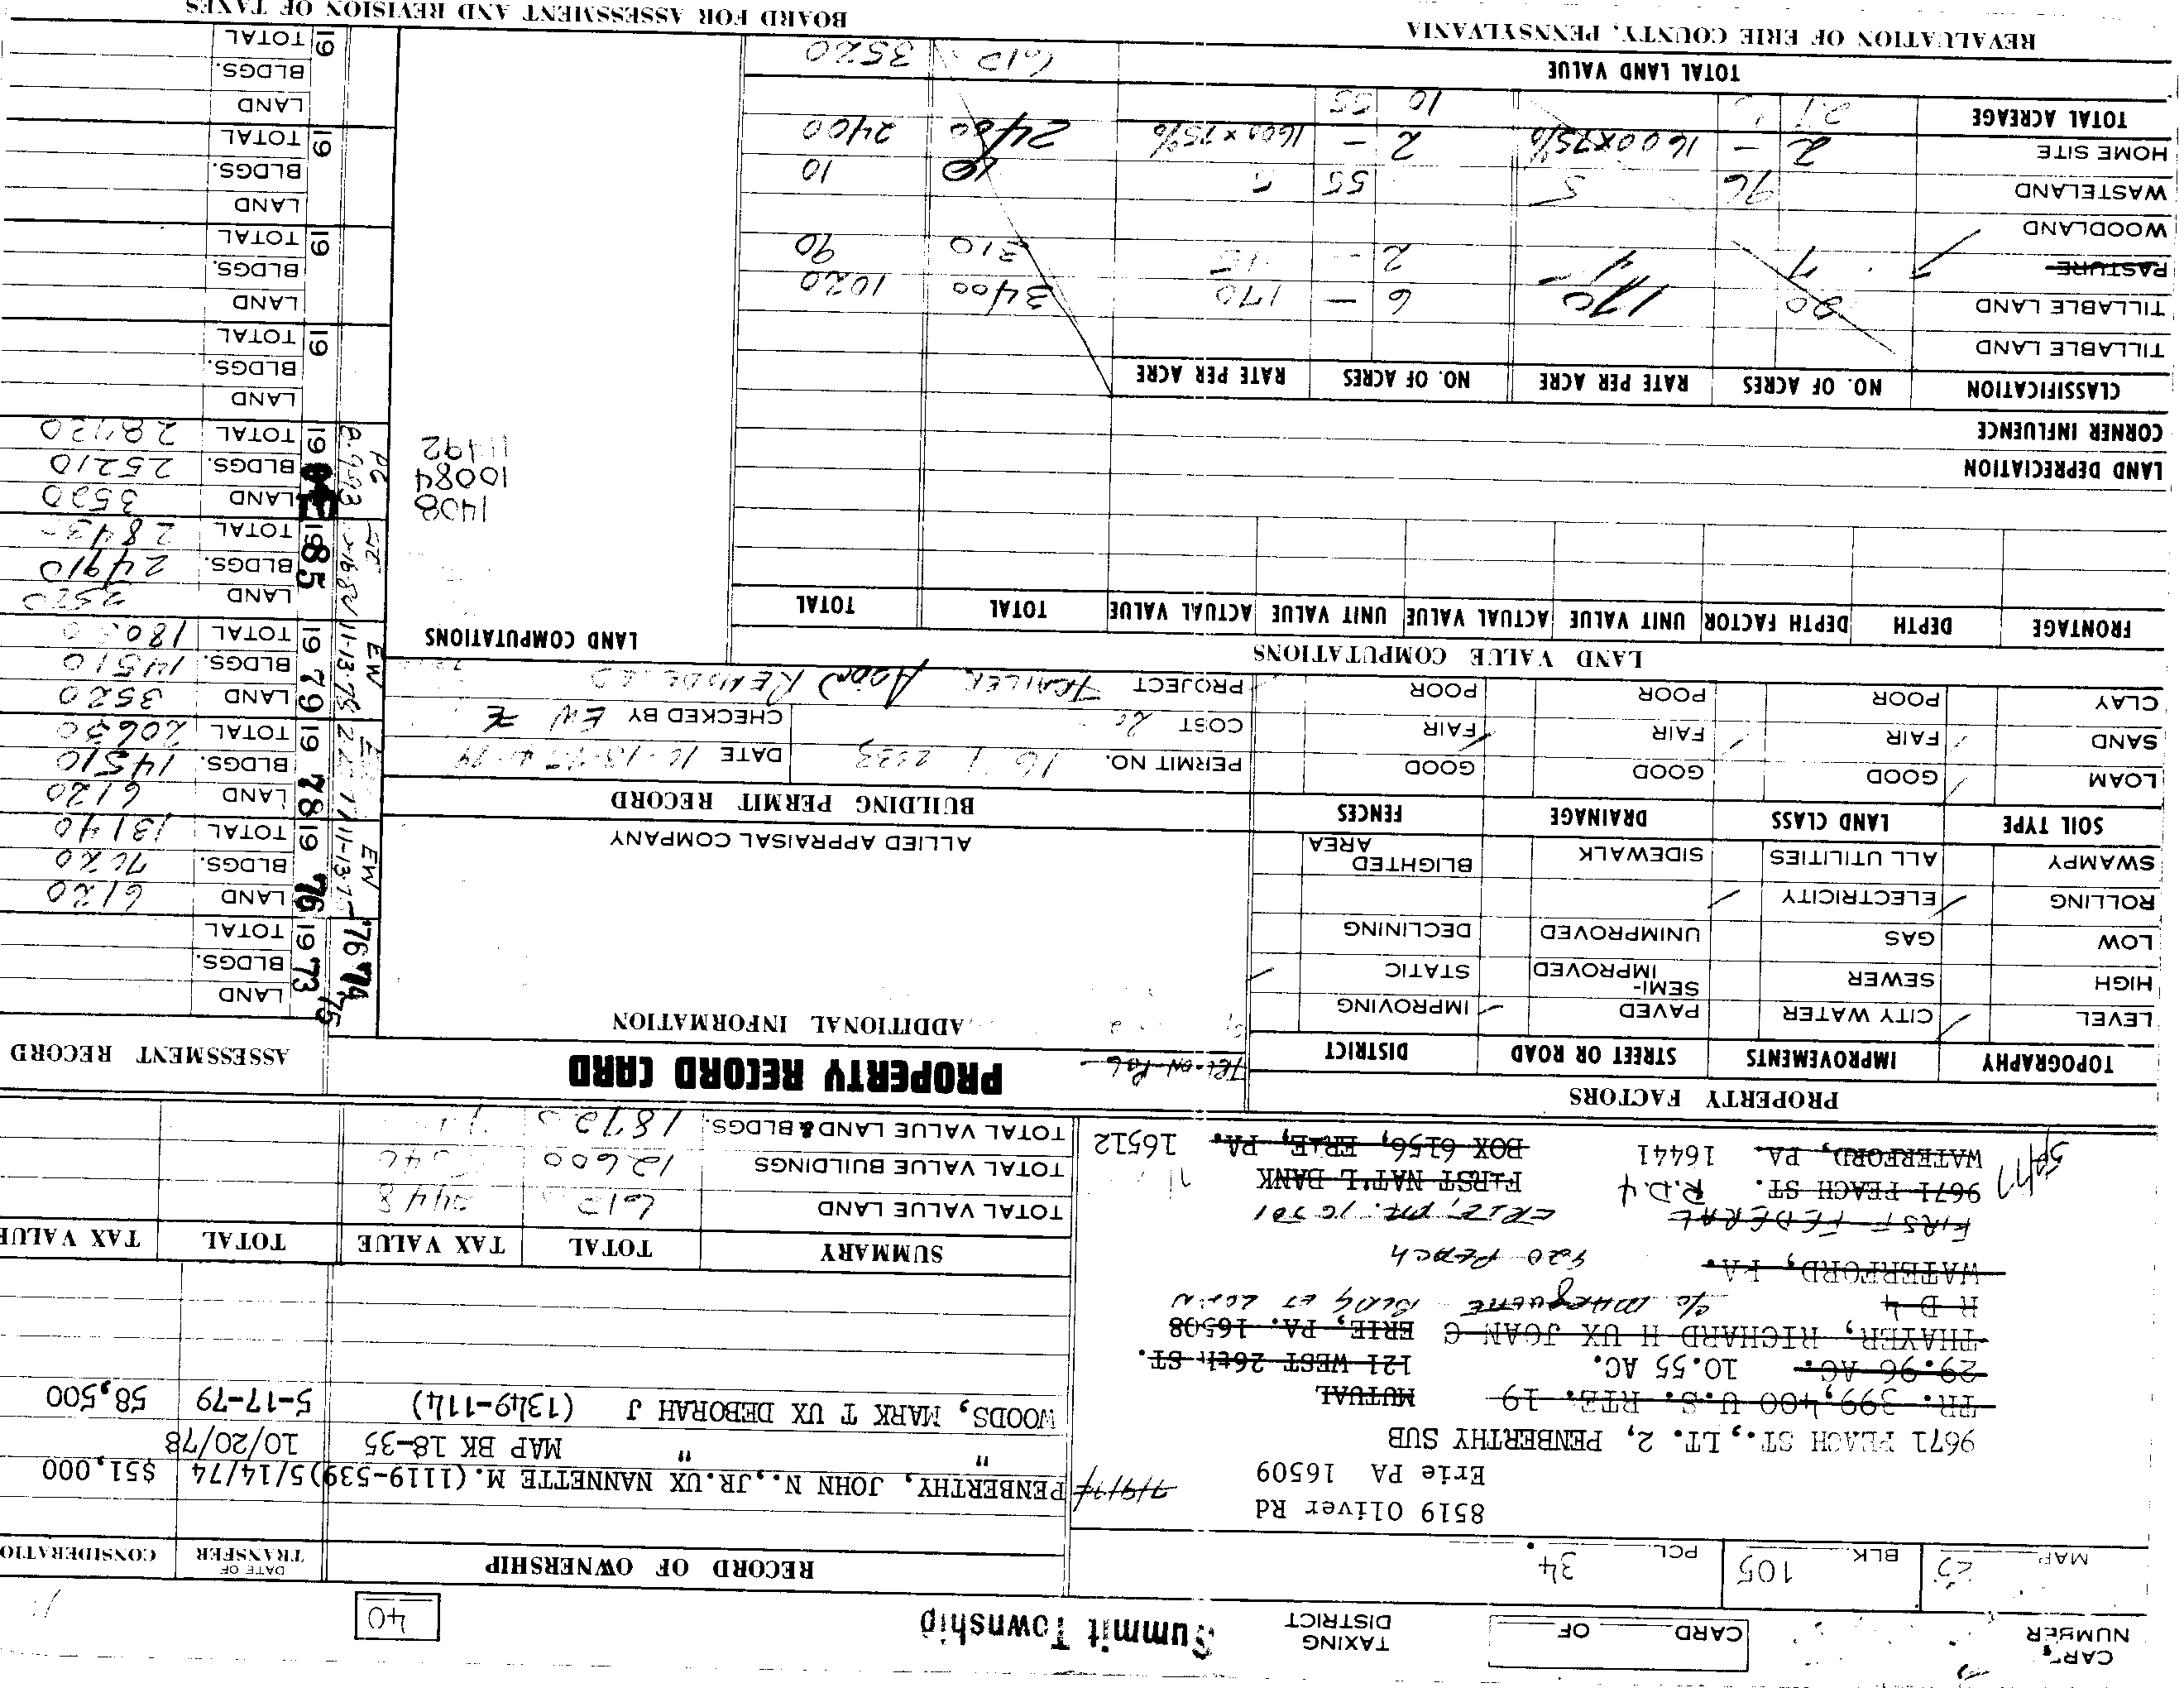 CARD NUMBER
CARD OF
TAXING DISTRICT
Summit Township
40
MAP BLK. 105 PCL. 34
RECORD OF OWNERSHIP
DATE OF TRANSFER
CONSIDERATIO
8519 Oliver Rd
Erie PA 16509
9671 PEACH ST., LT. 2, PENBERTHY SUB
TR. 399,400 U.S. RTE. 19 MUTUAL
29.96 AC. 10.55 AC. 121 WEST 26th ST.
THAYER, RICHARD H UX JOAN C ERIE, PA. 16508
R D 4 c/o Marquette Bldg et Loan
WATERFORD, PA. 920 Peach
FIRST FEDERAL ERIE, PA.
9671 PEACH ST. R.D.4 FIRST NAT'L BANK
WATERFORD, PA. 16441 BOX 6156, ERIE, PA. 16512
PENBERTHY, JOHN N., JR. UX NANNETTE M. (1119-539) 5/14/74 $51,000
" " MAP BK 18-35 10/20/78
WOODS, MARK T UX DEBORAH J (1349-114) 5-17-79 58,500
SUMMARY TOTAL TAX VALUE TOTAL TAX VALUE
TOTAL VALUE LAND
TOTAL VALUE BUILDINGS 12600
TOTAL VALUE LAND & BLDGS.
PROPERTY FACTORS
TOPOGRAPHY IMPROVEMENTS STREET OR ROAD DISTRICT
LEVEL CITY WATER PAVED IMPROVING
HIGH SEWER SEMI-IMPROVED STATIC
LOW GAS UNIMPROVED DECLINING
ROLLING ELECTRICITY
SWAMPY ALL UTILITIES SIDEWALK BLIGHTED AREA
SOIL TYPE LAND CLASS DRAINAGE FENCES
LOAM GOOD GOOD GOOD
SAND FAIR FAIR FAIR
CLAY POOR POOR POOR
PROPERTY RECORD CARD
ADDITIONAL INFORMATION
ALLIED APPRAISAL COMPANY
BUILDING PERMIT RECORD
PERMIT NO. DATE
COST CHECKED BY EW
PROJECT TRAILER Addn REMODELED
ASSESSMENT RECORD
19 73 LAND
BLDGS.
TOTAL
19 76 LAND 6120
BLDGS. 7020
TOTAL 13140
19 78 LAND 6120
BLDGS. 14510
TOTAL 20630
19 79 LAND 3520
BLDGS. 14510
TOTAL
19 85 LAND 3520
BLDGS. 24910
TOTAL
19 LAND 3520
BLDGS. 25210
TOTAL
19 LAND
BLDGS.
TOTAL
19 LAND
BLDGS.
TOTAL
19 LAND
BLDGS.
TOTAL
19 LAND
BLDGS.
TOTAL
LAND VALUE COMPUTATIONS
LAND COMPUTATIONS
FRONTAGE DEPTH DEPTH FACTOR UNIT VALUE ACTUAL VALUE UNIT VALUE ACTUAL VALUE TOTAL TOTAL
1408
10084
11492
LAND DEPRECIATION
CORNER INFLUENCE
CLASSIFICATION NO. OF ACRES RATE PER ACRE NO. OF ACRES RATE PER ACRE
TILLABLE LAND
TILLABLE LAND 20 170 6 — 170 3400 1020
PASTURE 2 — 90
WOODLAND
WASTELAND 96 5 55 10
HOME SITE 2 — 1600x75% 2 — 1600x75% 2400 2400
TOTAL ACREAGE 10 55
TOTAL LAND VALUE 3520
REVALUATION OF ERIE COUNTY, PENNSYLVANIA
BOARD FOR ASSESSMENT AND REVISION OF TAXES